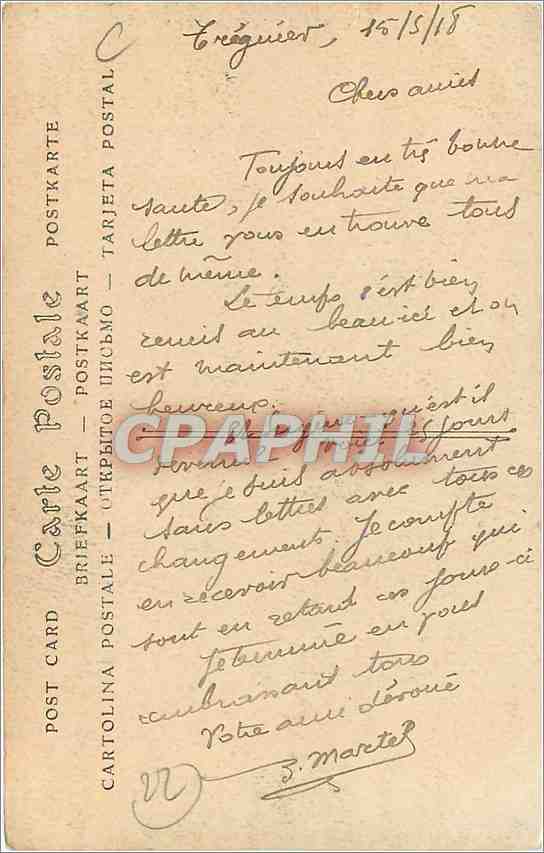 Tréguier, 15/5/18
Chers amies
Toujours en très bonne
santé, je souhaite que ma
lettre vous en trouve tous
de même.
Le temps s'est bien
remis au beau ici et on
est maintenant bien
heureux.
qu'est il
CPAPHIL
jours
que je suis absolument
sans lettres avec tous ces
changements. Je compte
en recevoir beaucoup qui
sont en retard ces jours-ci
Je termine en vous
embrassant tous
Votre ami dévoué
Martel
22
POST CARD Carte Postale POSTKARTE
BRIEFKAART — POSTKAART
CARTOLINA POSTALE — ОТКРЫТОЕ ПИСЬМО — TARJETA POSTAL